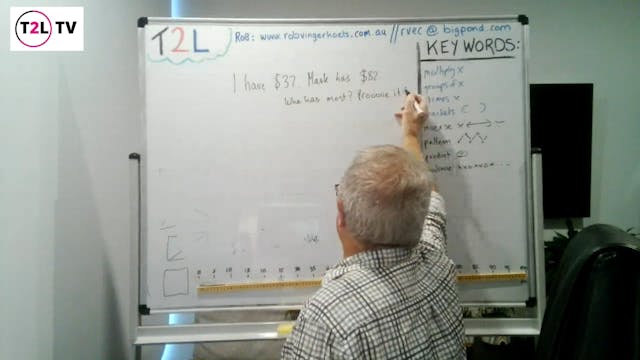 T2L TV
T2L
ROB: www.robvingerhoets.com.au // rvec @ bigpond.com
I have $37. Mark has $52
Who has most? Prooove it
KEY WORDS:
multiply x
groups of x
times x
brackets ( )
inverse x ⟷ ÷
pattern
predict